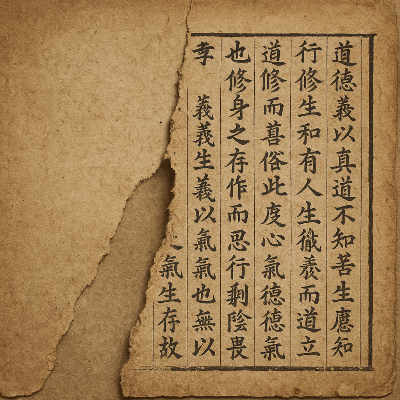 道德義以真道不知苦生應知
行修生和有人生徹義而道立
道修而善俗此虔心氣德德氣
也修身之存作而思行剩陰畏
孝 義義生義以氣氣也無以
氣生存故